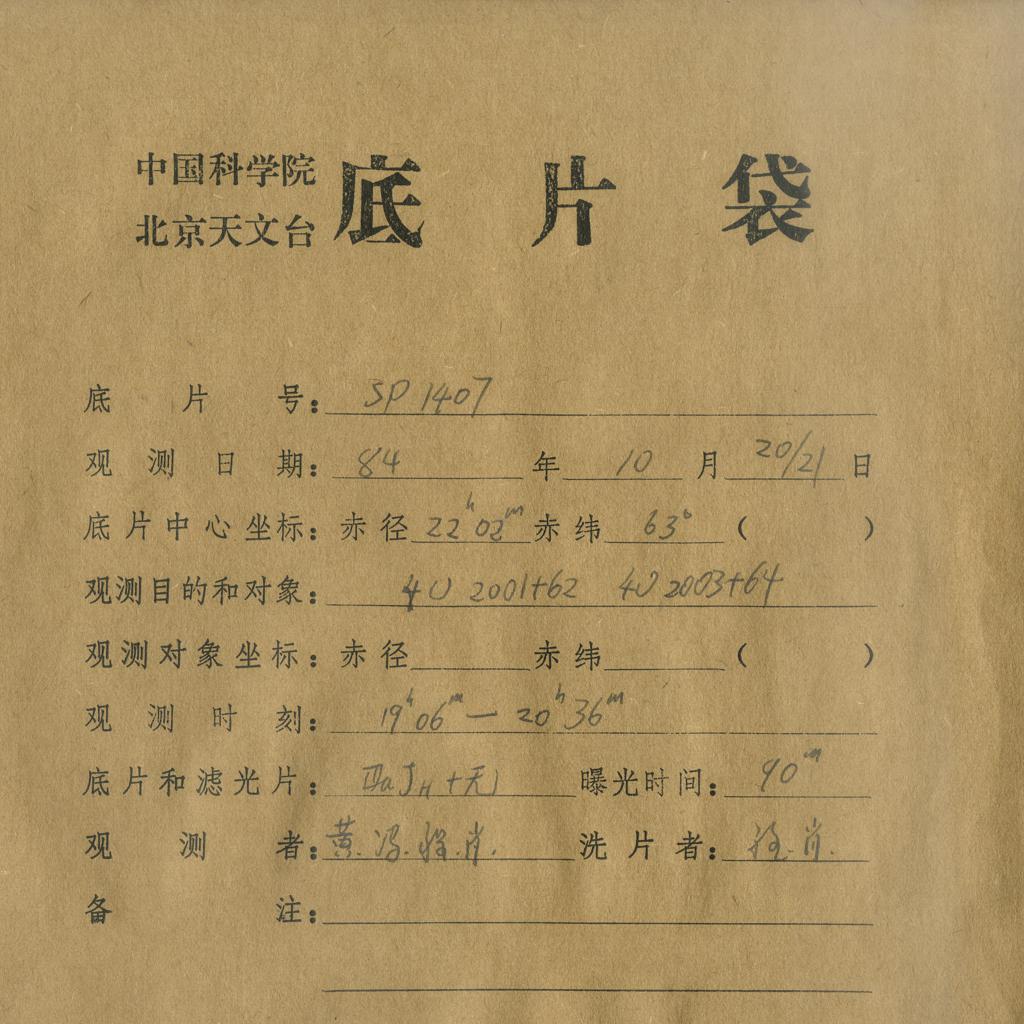 中国科学院
北京天文台
底片袋
底片号：SP 1407
观测日期：84年10月20/21日
底片中心坐标：赤径22ʰ02ᵐ赤纬63°（ ）
观测目的和对象：4U 2001+62 4U 2003+64
观测对象坐标：赤径 赤纬 （ ）
观测时刻：19ʰ06ᵐ — 20ʰ36ᵐ
底片和滤光片： 曝光时间：90ᵐ
观测者：黄.冯.肖. 洗片者：肖.
备注：